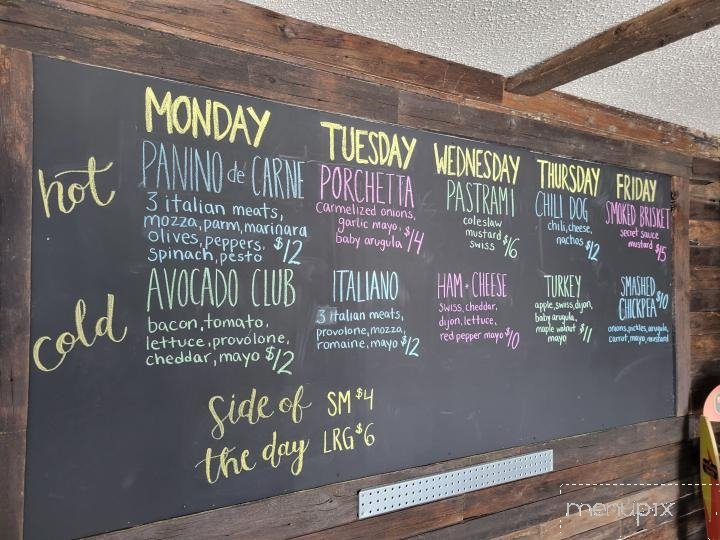 MONDAY
TUESDAY
WEDNESDAY
THURSDAY
FRIDAY
hot
PANINO de CARNE
3 italian meats,
mozza, parm, marinara
olives, peppers,
spinach, pesto $12
PORCHETTA
carmelized onions,
garlic mayo,
baby arugula $14
PASTRAMI
coleslaw
mustard
swiss $16
CHILI DOG
chili, cheese,
nachos $12
SMOKED BRISKET
secret sauce
mustard $15
cold
AVOCADO CLUB
bacon, tomato,
lettuce, provolone,
cheddar, mayo $12
ITALIANO
3 italian meats,
provolone, mozza,
romaine, mayo $12
HAM + CHEESE
swiss, cheddar,
dijon, lettuce,
red pepper mayo $10
TURKEY
apple, swiss, dijon,
baby arugula,
maple walnut
mayo $11
SMASHED
CHICKPEA $10
onions, pickles, arugula,
carrot, mayo, mustard
Side of
the day
SM $4
LRG $6
menupix